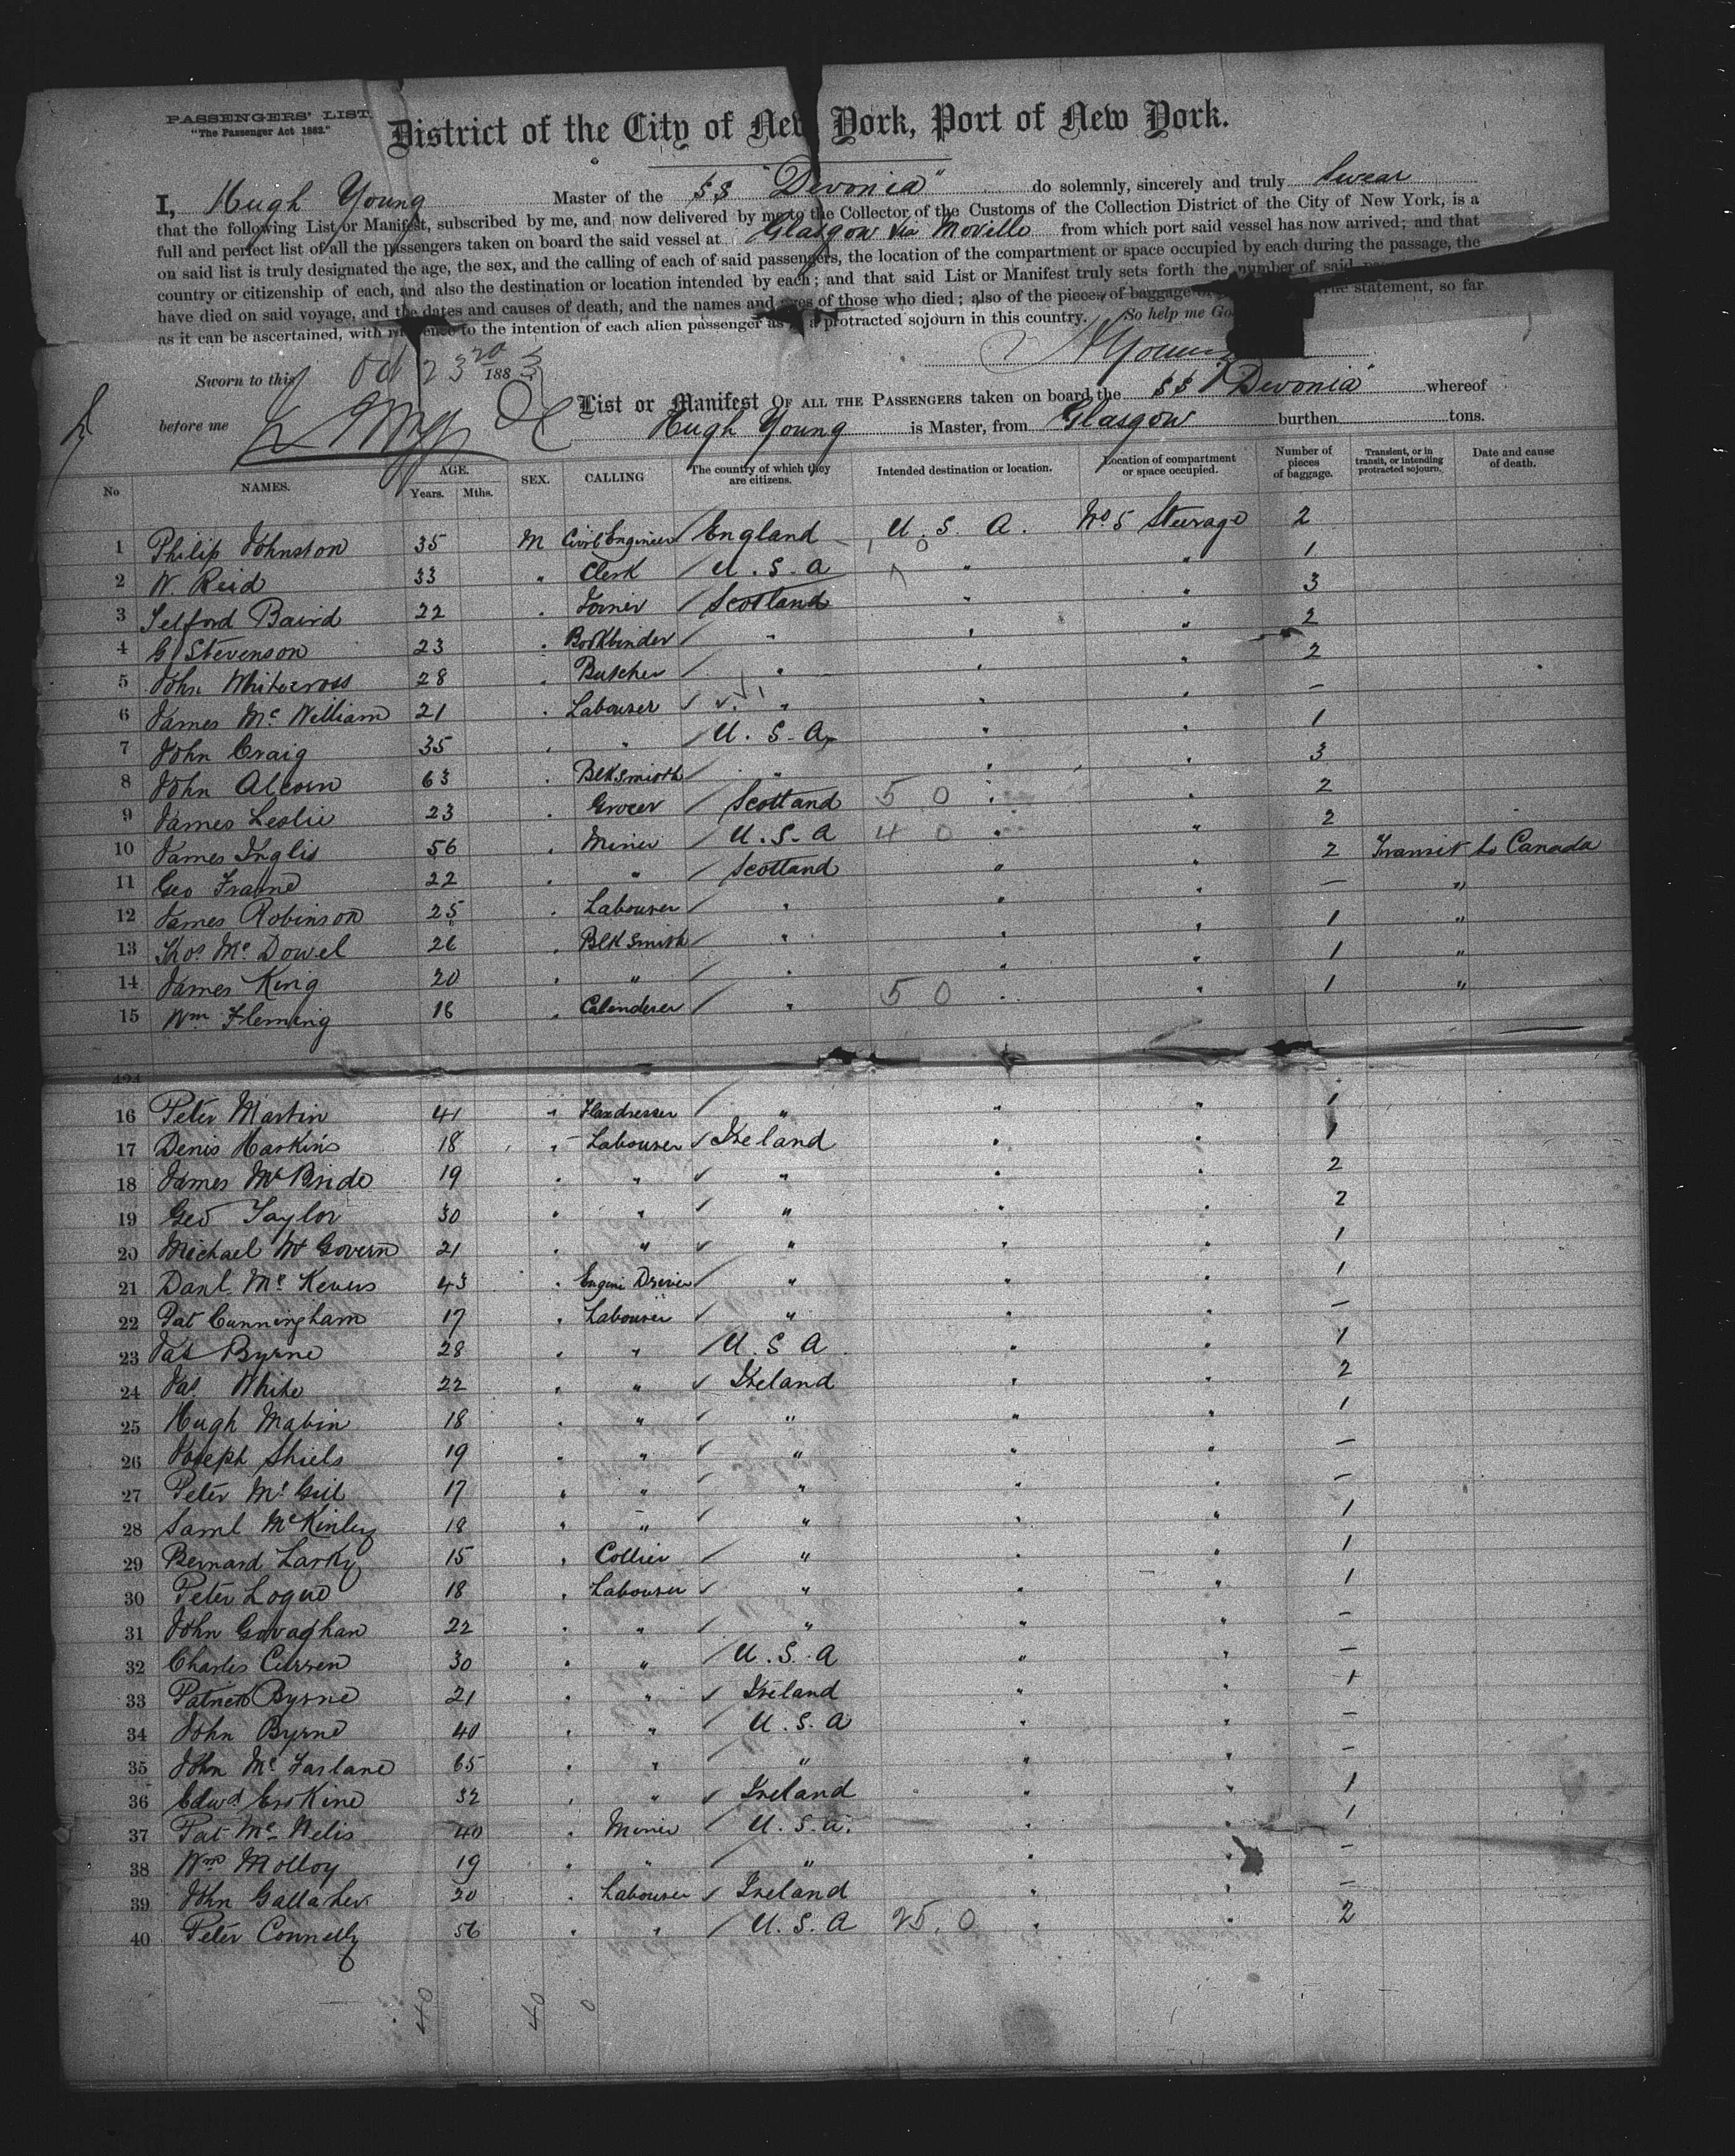 PASSENGERS' LIST.
"The Passenger Act 1882."
District of the City of New York, Port of New York.
I, Hugh Young Master of the SS "Devonia" do solemnly, sincerely and truly Swear
that the following List or Manifest, subscribed by me, and now delivered by me to the Collector of the Customs of the Collection District of the City of New York, is a
full and perfect list of all the passengers taken on board the said vessel at Glasgow via Moville from which port said vessel has now arrived; and that
on said list is truly designated the age, the sex, and the calling of each of said passengers, the location of the compartment or space occupied by each during the passage, the
country or citizenship of each, and also the destination or location intended by each; and that said List or Manifest truly sets forth the number of said
have died on said voyage, and the dates and causes of death, and the names and ages of those who died; also of the pieces of baggage statement, so far
as it can be ascertained, with reference to the intention of each alien passenger as a protracted sojourn in this country. So help me God
H Young
Sworn to this Oct 23 1883
before me
List or Manifest OF ALL THE PASSENGERS taken on board the SS "Devonia" whereof
Hugh Young is Master, from Glasgow burthen tons.
No NAMES. AGE. Years. Mths. SEX. CALLING The country of which they are citizens. Intended destination or location. Location of compartment or space occupied. Number of pieces of baggage. Transient, or in transit, or intending protracted sojourn. Date and cause of death.
1 Philip Johnston 35 M Civil Engineer England U.S.A. No 5 Steerage 2
2 W. Reid 33 " Clerk U.S.A " " 1
3 Telford Baird 22 " Joiner Scotland " " 3
4 G Stevenson 23 " Bookbinder " " " 2
5 John Whitecross 28 " Butcher " " " 2
6 James Mc William 21 " Labourer " " " –
7 John Craig 35 " " U.S.A " " 1
8 John Alcorn 63 " Blksmith " " " 3
9 James Leslie 23 " Grocer Scotland 5 0 " " 2
10 James Inglis 56 " Miner U.S.A 4 0 " " 2
11 Geo Frame 22 " " Scotland " " 2 Transit to Canada
12 James Robinson 25 " Labourer " " " – "
13 Thos Mc Dowel 26 " Blksmith " " " 1 "
14 James King 20 " " " " " 1 "
15 Wm Fleming 18 " Calenderer " 5 0 " " 1 "
16 Peter Martin 41 " Flaxdresser " " " 1
17 Denis Harkins 18 " Labourer Ireland " " 1
18 James Mc Bride 19 " " " " " 2
19 Geo Taylor 30 " " " " " 2
20 Michael Mc Govern 21 " " " " " 1
21 Danl Mc Kevers 43 " Engine Driver " " " 1
22 Pat Cunningham 17 " Labourer " " " –
23 Jas Byrne 28 " " U.S.A " " 1
24 Jas White 22 " " Ireland " " 2
25 Hugh Mabin 18 " " " " " 1
26 Joseph Shiels 19 " " " " " –
27 Peter Mc Gill 17 " " " " " –
28 Saml McKinley 18 " " " " " 1
29 Bernard Larky 15 " Collier " " " 1
30 Peter Logue 18 " Labourer " " " 1
31 John Gavaghan 22 " " " " " –
32 Charles Curren 30 " " U.S.A " " –
33 Patrick Byrne 21 " " Ireland " " 1
34 John Byrne 40 " " U.S.A " " –
35 John Mc Farlane 65 " " " " " –
36 Edwd Erskine 32 " " Ireland " " 1
37 Pat Mc Nelis 40 " Miner U.S.A. " " 1
38 Wm Molloy 19 " " " " " –
39 John Gallaher 20 " Labourer Ireland " " –
40 Peter Connelly 56 " " U.S.A 25.0 " " 2
40 40 0